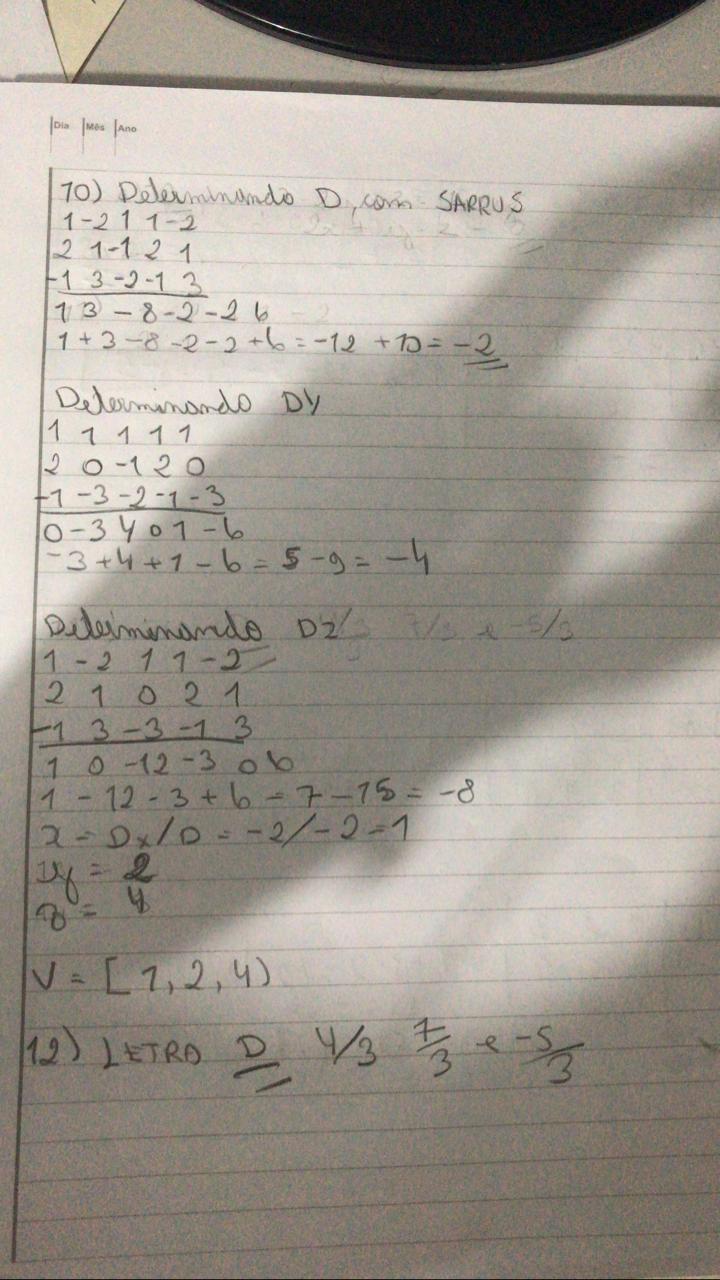 Dia Mês Ano
10) Determinando D, com SARRUS
1 -2 1 1 -2
2 1 -1 2 1
-1 3 -2 -1 3
1 3 - 8 -2 -2 6
1 + 3 - 8 - 2 - 2 + 6 = -12 + 10 = -2
Determinando DY
1 1 1 1 1
2 0 -1 2 0
-1 -3 -2 -1 -3
0 -3 4 0 1 -6
-3 + 4 + 1 - 6 = 5 - 9 = -4
Determinando DZ
1 -2 1 1 -2
2 1 0 2 1
-1 3 -3 -1 3
1 0 -12 -3 0 6
1 - 12 - 3 + 6 = 7 - 15 = -8
x = Dx/D = -2/-2 = 1
y = 2
z = 4
V = [1, 2, 4)
12) LETRA D 4/3 7/3 e -5/3